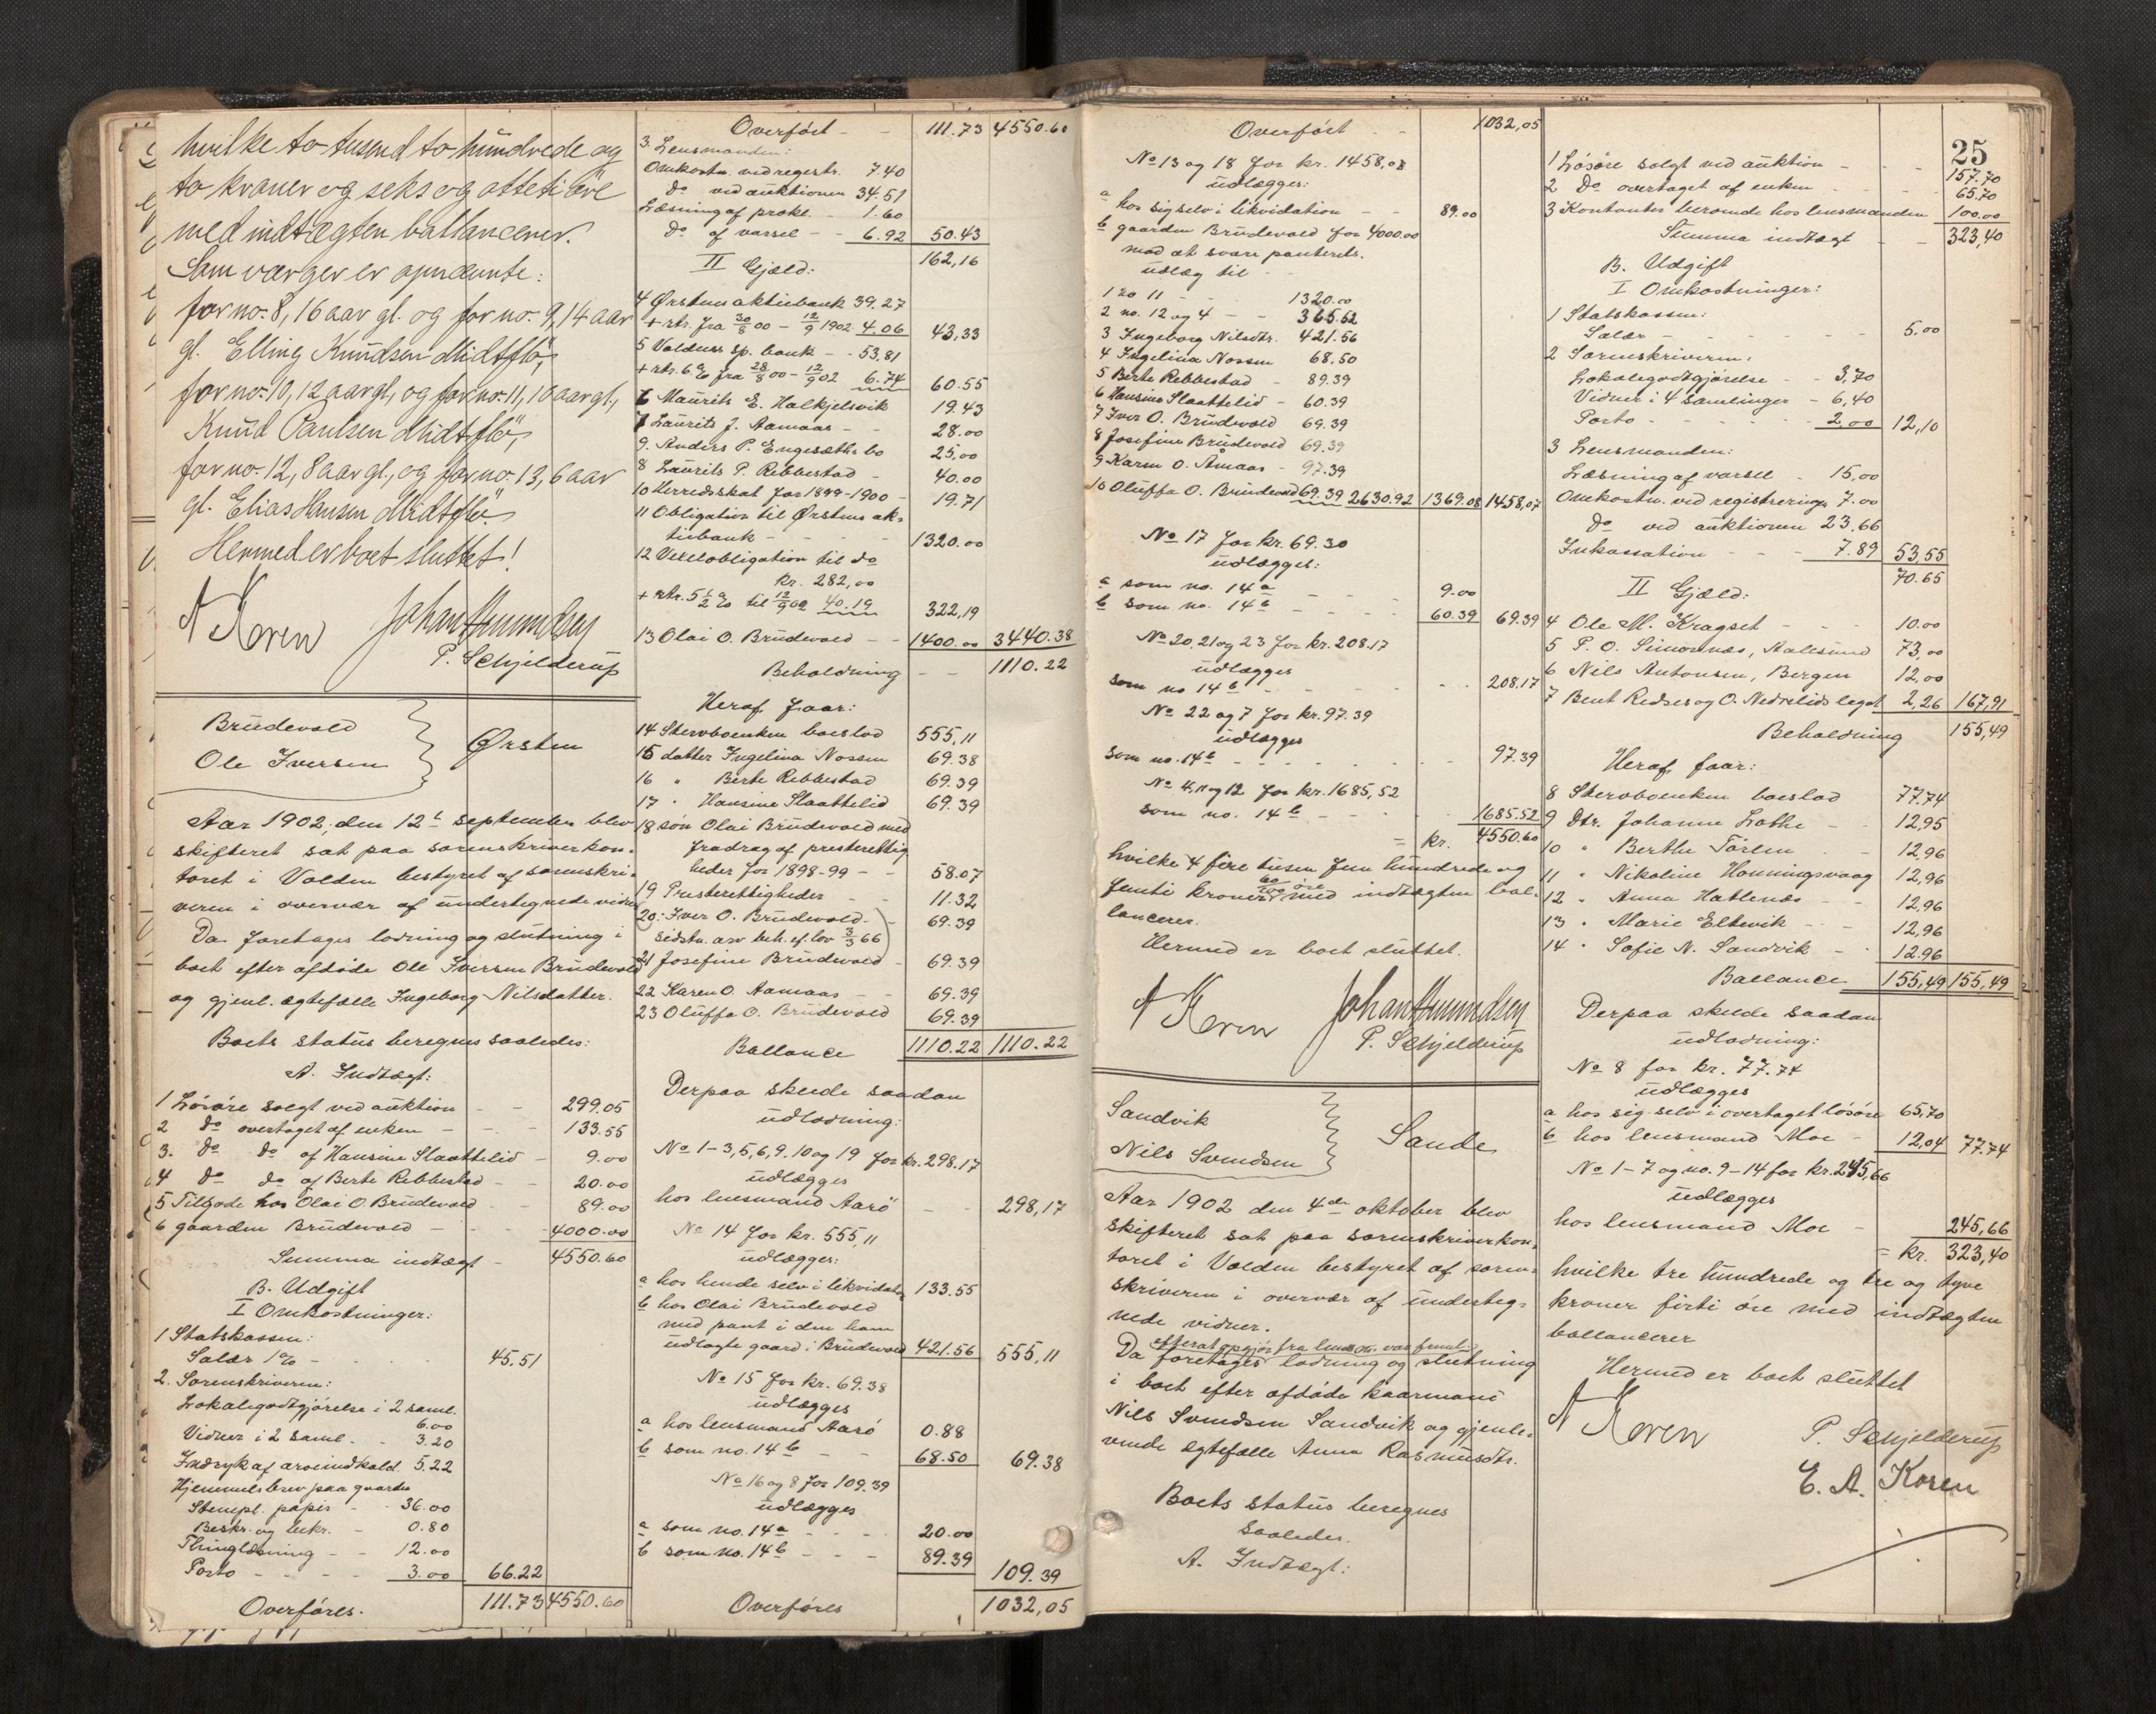 hvilke to tusend to hundrede og
to kroner og seks og otteti øre
med indtægten ballancerer.
Som værger er opnævnte:
for no. 8, 16 aar gl. og for no. 9, 14 aar
gl. Elling Knudsen Midtflø,
for no. 10, 12 aar gl., og for no. 11, 10 aar gl.,
Knud Paulsen Midtflø,
for no. 12, 8 aar gl., og for no. 13, 6 aar
gl. Elias Hansen Midtflø.
Hermed er boet sluttet!
A Koren Johan Amundsen
P. Schjelderup
Brudevold
Ole Iversen
Ørsten
Aar 1902, den 12t september blev
skifteret sat paa sorenskriverkon-
toret i Volden bestyret af sorenskri-
veren i overvær af undertegnede vidner
Da foretages lodning og slutning i
boet efter afdøde Ole Iversen Brudevold
og gjenl. ægtefælle Ingeborg Nilsdatter.
Boets status beregnes saaledes:
A. Indtægt:
1 Løsøre solgt ved auktion - - 299.05
2 do overtaget af enken - - - 133.55
3. do do af Hansine Slaattelid - 9.00
4 do do af Berte Ribbestad - - 20.00
5 Tilgode hos Olai O. Brudevold - 89.00
6 gaarden Brudevold - - - 4000.00
Summa indtægt - 4550.60
B. Udgift
I Omkostninger:
1 Statskassen:
Salær 1% - - - - 45.51
2. Sorenskriveren:
Lokalegodtgjørelse i 2 saml.
6.00
Vidner i 2 saml. - - 3.20
Indryk af arveindkald. 5.22
Hjemmelsbrev paa gaarden
Stempl. papir - - 36.00
Beskr. og bekr. - 0.80
Thinglæsning - - 12.00
Porto - - - - 3.00 66.22
Overføres. 111.73 4550.60
Overført - - 111.73 4550.60
3. Lensmanden:
Omkostn. ved registr. 7.40
do ved auktionen 34.51
Læsning af prokl. - 1.60
do af varsel - - 6.92 50.43
162,16
II Gjæld:
4 Ørstens aktiebank 39.27
+ rtr. fra 30/8 00 - 12/9 1902 4.06 43,33
5 Voldens sp. bank - - 53,81
+ rtr. 6% fra 28/8 00 - 12/9 02 6.74 60.55
6 Maurits E. Halkjelsvik 19.43
7 Laurits J. Aamaas - - 28.00
9. Anders P. Engesæths bo 25,00
8 Laurits P. Ribbestad - 40.00
10 Herredsskat for 1899-1900 - 19.71
11 Obligation til Ørstens ak-
tiebank - - - - 1320.00
12 Vexelobligation til do
kr. 282,00
+ rtr. 5 1/2 % til 12/9 02 40.19 322,19
13 Olai O. Brudevold - - 1400.00 3440.38
Beholdning - - 1110.22
Heraf faar:
14 Stervboenken boeslod 555,11
15 datter Ingelina Nossen 69.38
16 " Berte Ribbestad 69.39
17 " Hansine Slaattelid 69.39
18 søn Olai Brudevold med
fradrag af presterettig
heder for 1898-99 - - 58.07
19 Presterettigheder - - 11.32
20. Iver O. Brudevold - 69.39
sidstn. arv beh. ef. lov 3/3 66
21 Josefine Brudevold - 69.39
22 Karen O. Aamaas - - 69.39
23 Oluffa O. Brudevold 69.39
Ballance 1110.22 1110.22
Derpaa skede saadan
udlodning:
No 1-3, 5, 6, 9, 10 og 19 for kr. 298.17
udlægges
hos lensmand Aarø - - 298,17
No 14 for kr. 555,11
udlægges:
a hos hende selv i likvidation 133.55
b hos Olai Brudevold
med pant i den ham
udlagte gaard i Brudevold 421.56 555,11
No 15 for kr. 69.38
udlægges
a hos lensmand Aarø 0.88
b som no. 14 b - - 68.50 69.38
No 16 og 8 for 109.39
udlægges
a som no. 14 a - - - - 20.00
b som no. 14 b - - - 89.39 109.39
Overføres 1032,05
Overført - - 1032,05
No 13 og 18 for kr. 1458,08
udlægges:
a hos sig selv i likvidation - - 89.00
b gaarden Brudevold for 4000.00
mod at svare panterets.
udlæg til -
1 no 11 - - 1320.00
2 no. 12 og 4 - - 365.62
3 Ingeborg Nilsdtr. 421.56
4 Ingelina Nossen 68.50
5 Berte Ribbestad - 89.39
6 Hansine Slaattelid - 60.39
7 Iver O. Brudevold 69.39
8 Josefine Brudevold 69.39
9 Karen O. Åmaas - 97.39
10 Oluffa O. Brudevold 69.39 2630.92 1369.08 1458,07
No 17 for kr. 69.30
udlægges:
a som no. 14 a - - - 9.00
b som no. 14 b - - - - 60.39 69.39
No 20, 21 og 23 for kr. 208.17
udlægges
som no 14 b - - - - - 208.17
No 22 og 7 for kr. 97.39
udlægges
som no. 14 b - - - - - - 97.39
No 4, 11 og 12 for kr. 1685,52
som no. 14 b - - - - 1685.52
= kr. 4550.60
hvilke 4 fire tusen fem hundrede og
femti kroner 60/100 øre med indtægten bal-
lancerer.
Hermed er boet sluttet.
A Koren Johan Amundsen
P. Schjelderup
Sandvik
Nils Svendsen
Sande
Aar 1902 den 4de oktober blev
skifteret sat paa sorenskriverkon-
toret i Volden bestyret af soren-
skriveren i overvær af underteg-
nede vidner.
efterat opgjør fra lensm. var freml.
Da foretages lodning og slutning
i boet efter afdøde kaarmand
Nils Svendsen Sandvik og gjenle-
vende ægtefælle Anna Rasmusdtr.
Boets status beregnes
saaledes.
A. Indtægt:
25
1 Løsøre solgt ved auktion - - - 157.70
2 Do overtaget af enken - - - 65.70
3 Kontanter beroende hos lensmanden 100.00
Summa indtægt - - 323,40
B. Udgift
I Omkostninger:
1 Statskassen:
Salær - - - - - 5.00
2 Sorenskriveren:
Lokalegodtgjørelse - - 3,70
Vidner i 4 samlinger - 6,40
Porto - - - - - 2,00 12,10
3 Lensmanden:
Læsning af varsel - 15,00
Omkostn. ved registrering 7.00
do ved auktionen 23,66
Inkassation - - - 7.89 53,55
70.65
II Gjæld:
4 Ole M. Kragset - - - 10.00
5 P. O. Simonnæs, Aalesund 73,00
6 Nils Antonsen, Bergen 12,00
7 Bent Redses og O. Nedrelids legat 2,26 167,91
Beholdning 155,49
Heraf faar:
8 Stervboenken boeslod 77.74
9 Dtr. Johanne Lothe - - 12,95
10 " Berthe Törlen - - 12,96
11 " Nikoline Honningsvaag 12,96
12 " Anna Hatlenæs - - 12,96
13 " Marie Eltevik - - - 12,96
14 " Sofie N. Sandvik - 12.96
Ballance 155,49 155,49
Derpaa skede saadan
udlodning:
No 8 for kr. 77.74
udlægges
a hos sig selv i overtaget løsøre 65,70
b hos lensmand Moe - 12,04 77.74
No 1-7 og no. 9-14 for kr. 245,66
udlægges
hos lensmand Moe - 245,66
= kr. 323,40
hvilke tre hundrede og tre og tyve
kroner førti øre med indtægten
ballancerer
Hermed er boet sluttet
A Koren P. Schjelderup
E. A. Koren